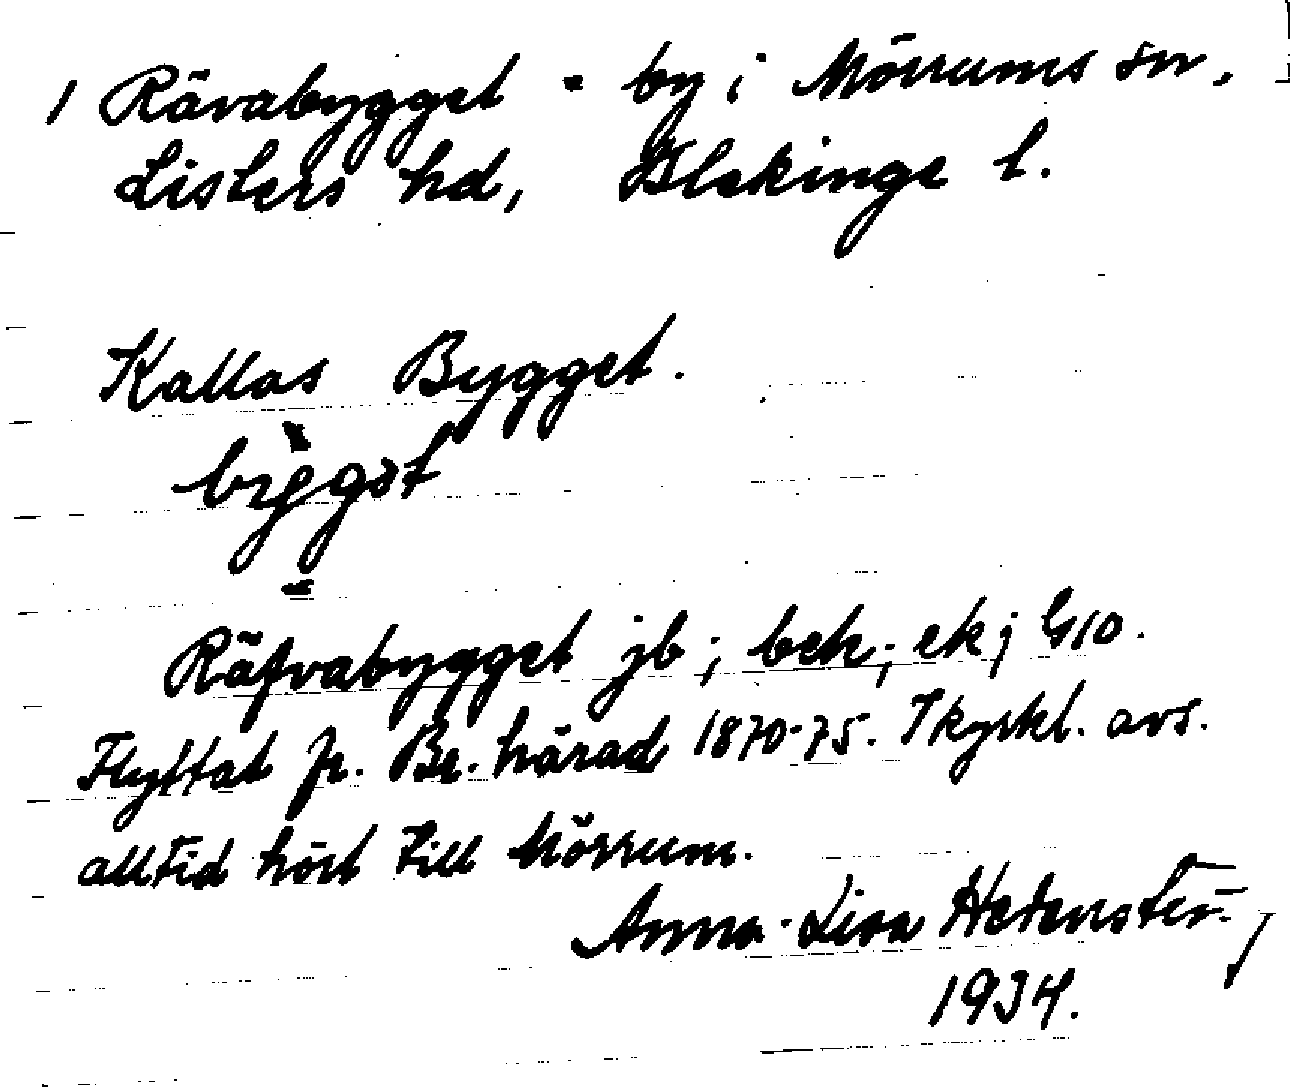 1 Rävabygget - by i Mörrums sn.
Listers hd, Blekinge l.
Kallas Bygget.
Räfvabygget jb; beh; ek; G10.
Flyttat fr. Br. härad 1870-75. I kyrkl. avs.
alltid hört till Mörrum.
Anna-Lisa
1934.